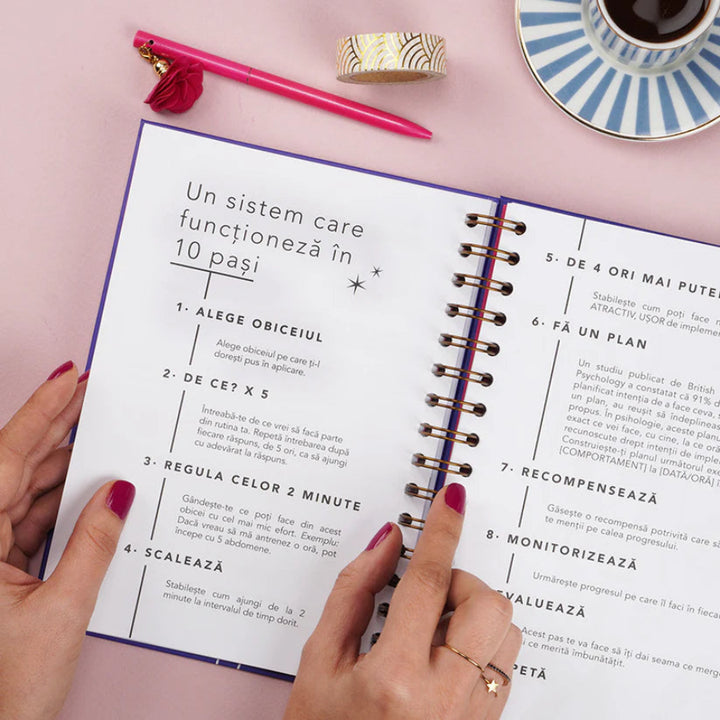 Un sistem care
funcționeză în
10 pași
1. ALEGE OBICEIUL
Alege obiceiul pe care ți-l
dorești pus în aplicare.
2. DE CE? X 5
Întreabă-te de ce vrei să facă parte
din rutina ta. Repetă întrebarea după
fiecare răspuns, de 5 ori, ca să ajungi
cu adevărat la răspuns.
3. REGULA CELOR 2 MINUTE
Gândește-te ce poți face din acest
obicei cu cel mai mic efort. Exemplu:
Dacă vreau să mă antrenez o oră, pot
începe cu 5 abdomene.
4. SCALEAZĂ
Stabilește cum ajungi de la 2
minute la intervalul de timp dorit.
5. DE 4 ORI MAI
Stabilește cum poți face
ATRACTIV, UȘOR de
6. FĂ UN PLAN
Un studiu publicat de British
Psychology a constatat că 91% d
planificat intenția de a face ceva,
un plan, au reușit să
propus. În psihologie, aceste
exact ce vei face, cu cine, la ce
recunoscute drept intenții de
Construiește-ți planul următorul
[COMPORTAMENT] la [DATA/ORA]
7. RECOMPENSEAZĂ
Găsește o recompensă potrivită care
te mențină pe calea progresului.
8. MONITORIZEAZĂ
Urmărește progresul pe care îl faci în
EVALUEAZĂ
Acest pas te va face să îți dai seama ce
și ce merită îmbunătățit.